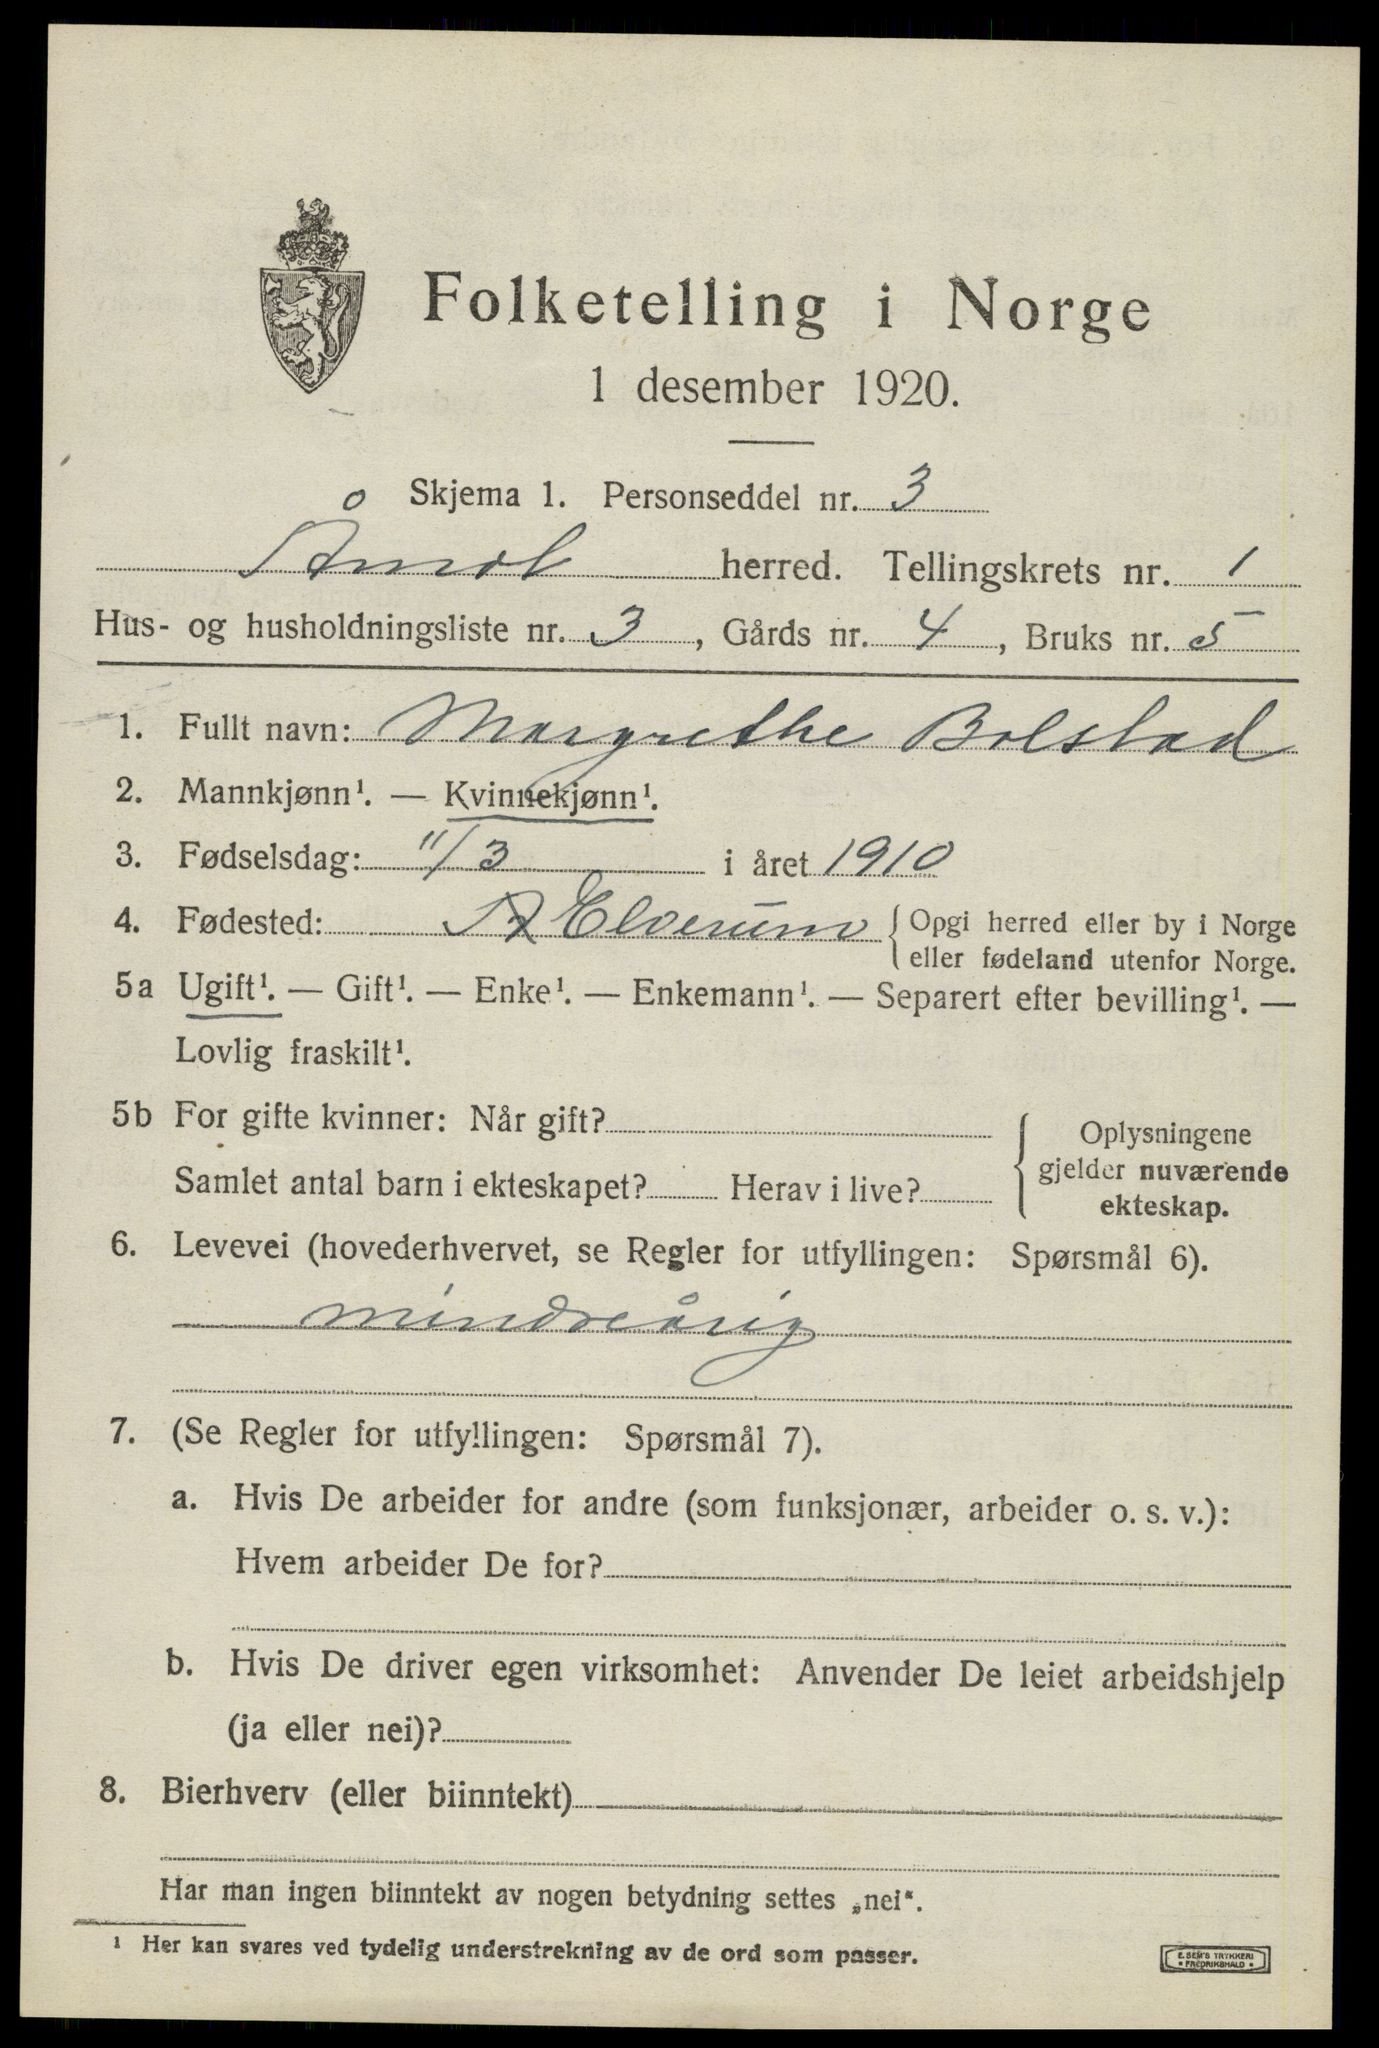 Folketelling i Norge
1 desember 1920.
Skjema 1. Personseddel nr. 3
Åmot herred. Tellingskrets nr. 1
Hus- og husholdningsliste nr. 3, Gårds nr. 4, Bruks nr. 5
1. Fullt navn: Margrethe Bolstad
2. Mannkjønn¹. — Kvinnekjønn¹.
3. Fødselsdag: 11/3 i året 1910
4. Fødested: Elverum { Opgi herred eller by i Norge
eller fødeland utenfor Norge.
5a Ugift¹. — Gift¹. — Enke¹. — Enkemann¹. — Separert efter bevilling¹. —
Lovlig fraskilt¹.
5b For gifte kvinner: Når gift?
Samlet antal barn i ekteskapet? Herav i live?
Oplysningene
gjelder nuværende
ekteskap.
6. Levevei (hovederhvervet, se Regler for utfyllingen: Spørsmål 6).
mindreårig
7. (Se Regler for utfyllingen: Spørsmål 7).
a. Hvis De arbeider for andre (som funksjonær, arbeider o. s. v.):
Hvem arbeider De for?
b. Hvis De driver egen virksomhet: Anvender De leiet arbeidshjelp
(ja eller nei)?
8. Bierhverv (eller biinntekt)
Har man ingen biinntekt av nogen betydning settes „nei“.
¹ Her kan svares ved tydelig understrekning av de ord som passer.
E. SEM'S TRYKKERI
* FREDRIKSHALD *